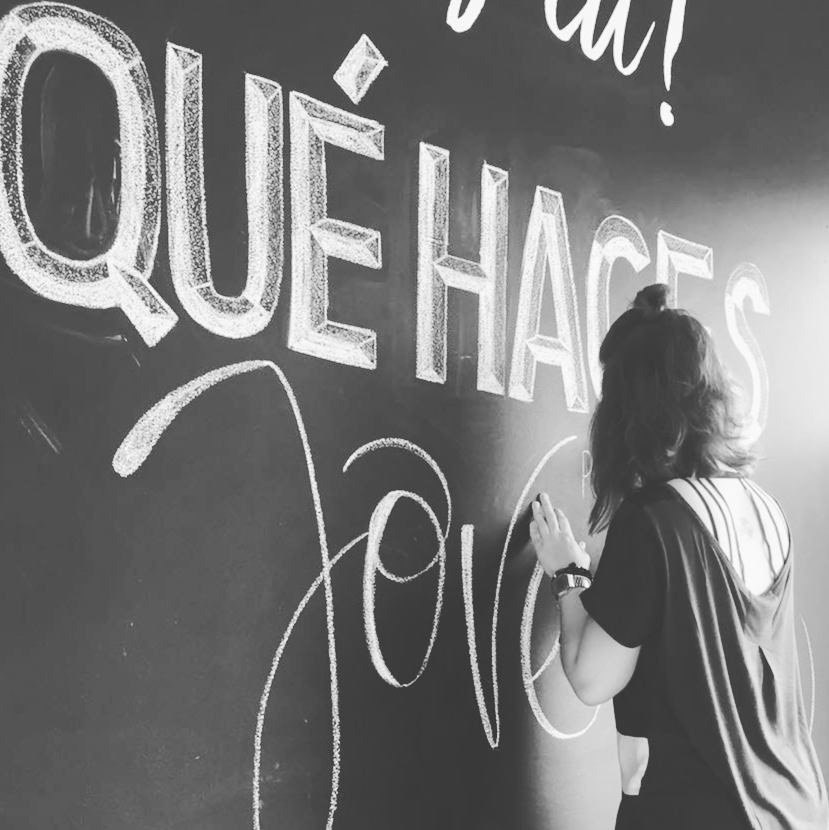 QUÉ HACES
Jove